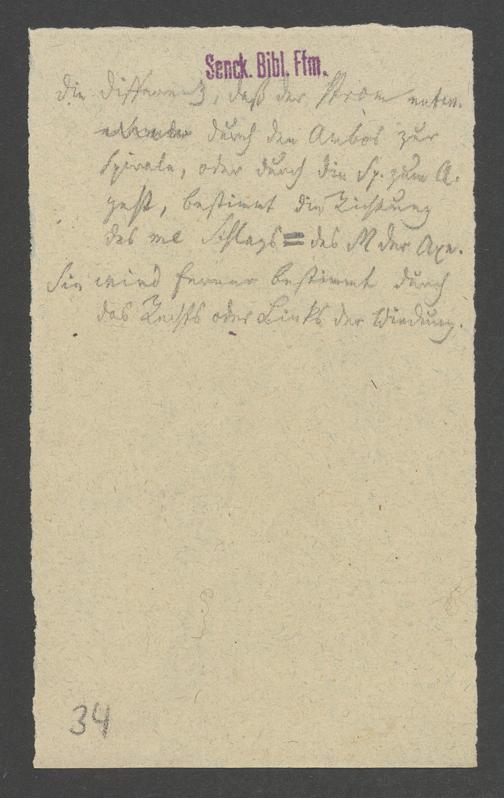 Senck. Bibl. Ffm.
Die Differenz, daß der Strom
durch den Ambos zur
Spirale, oder durch die Sp. zum A.
geht, bestimmt die Richtung
des me Schlags = des M der Axe.
Sie wird ferner bestimmt durch
das Rechts oder Links der Windung.
34